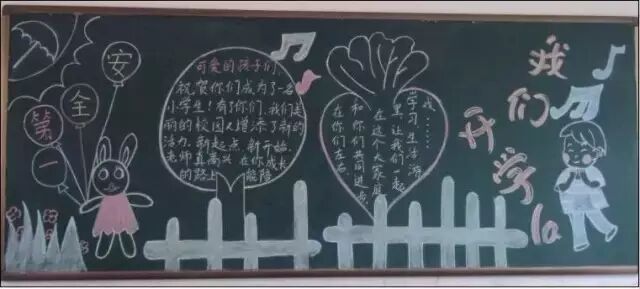 安全第一
可爱的孩子们
祝贺你们成为了一名
小学生!有了你们,我们美
丽的校园又增添了新的
活力。新起点,新开始,
老师真高兴 在你成长
的路上 能陪
学习生活游
里,让我们一起
在这个大家庭
和你们共同进步,
在你们左右
我们
开学la